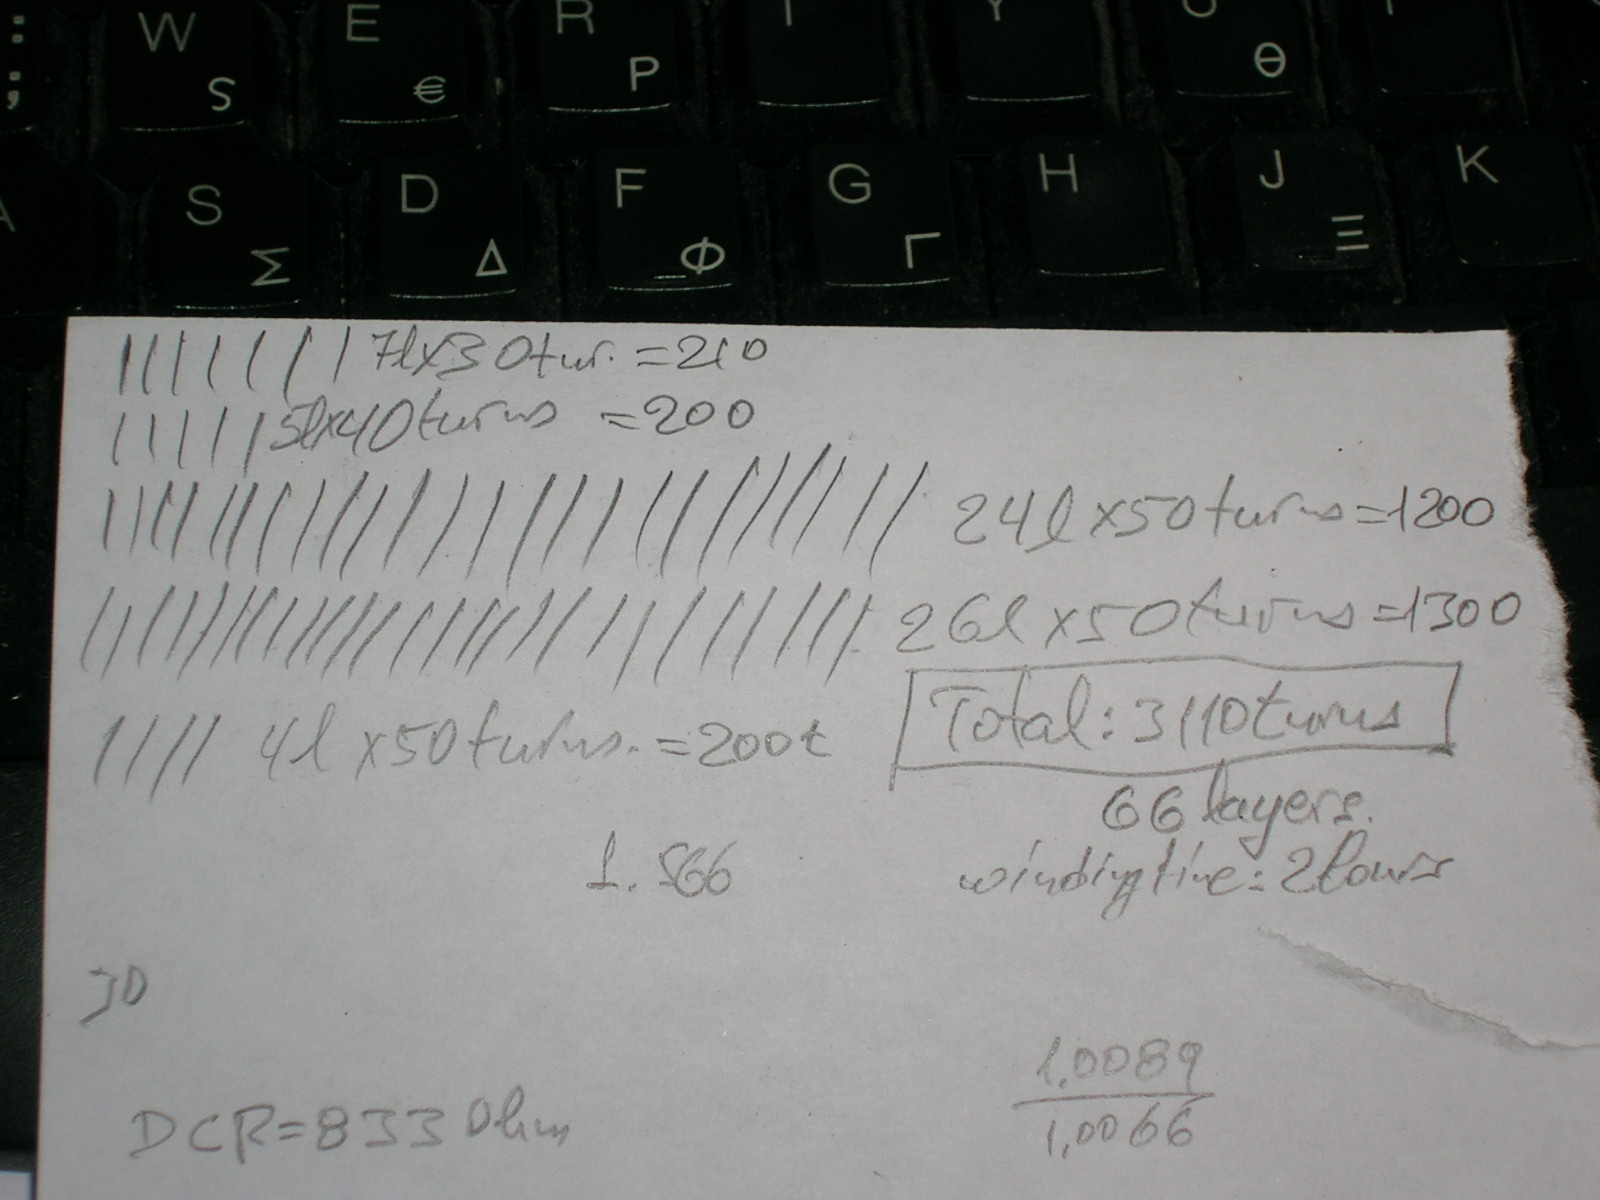 W E R T Y U
S € P Θ
A S D F G H J K
Σ Δ Φ Γ Ξ
7l x 30tur. = 210
5l x 40 turns = 200
24l x 50 turns = 1200
26l x 50 turns = 1300
Total: 3110 turns
4l x 50 turns. = 200t
66 layers.
1.566
winding time: 2 hours
30
1,0089
1,0066
DCR = 833 Ohm